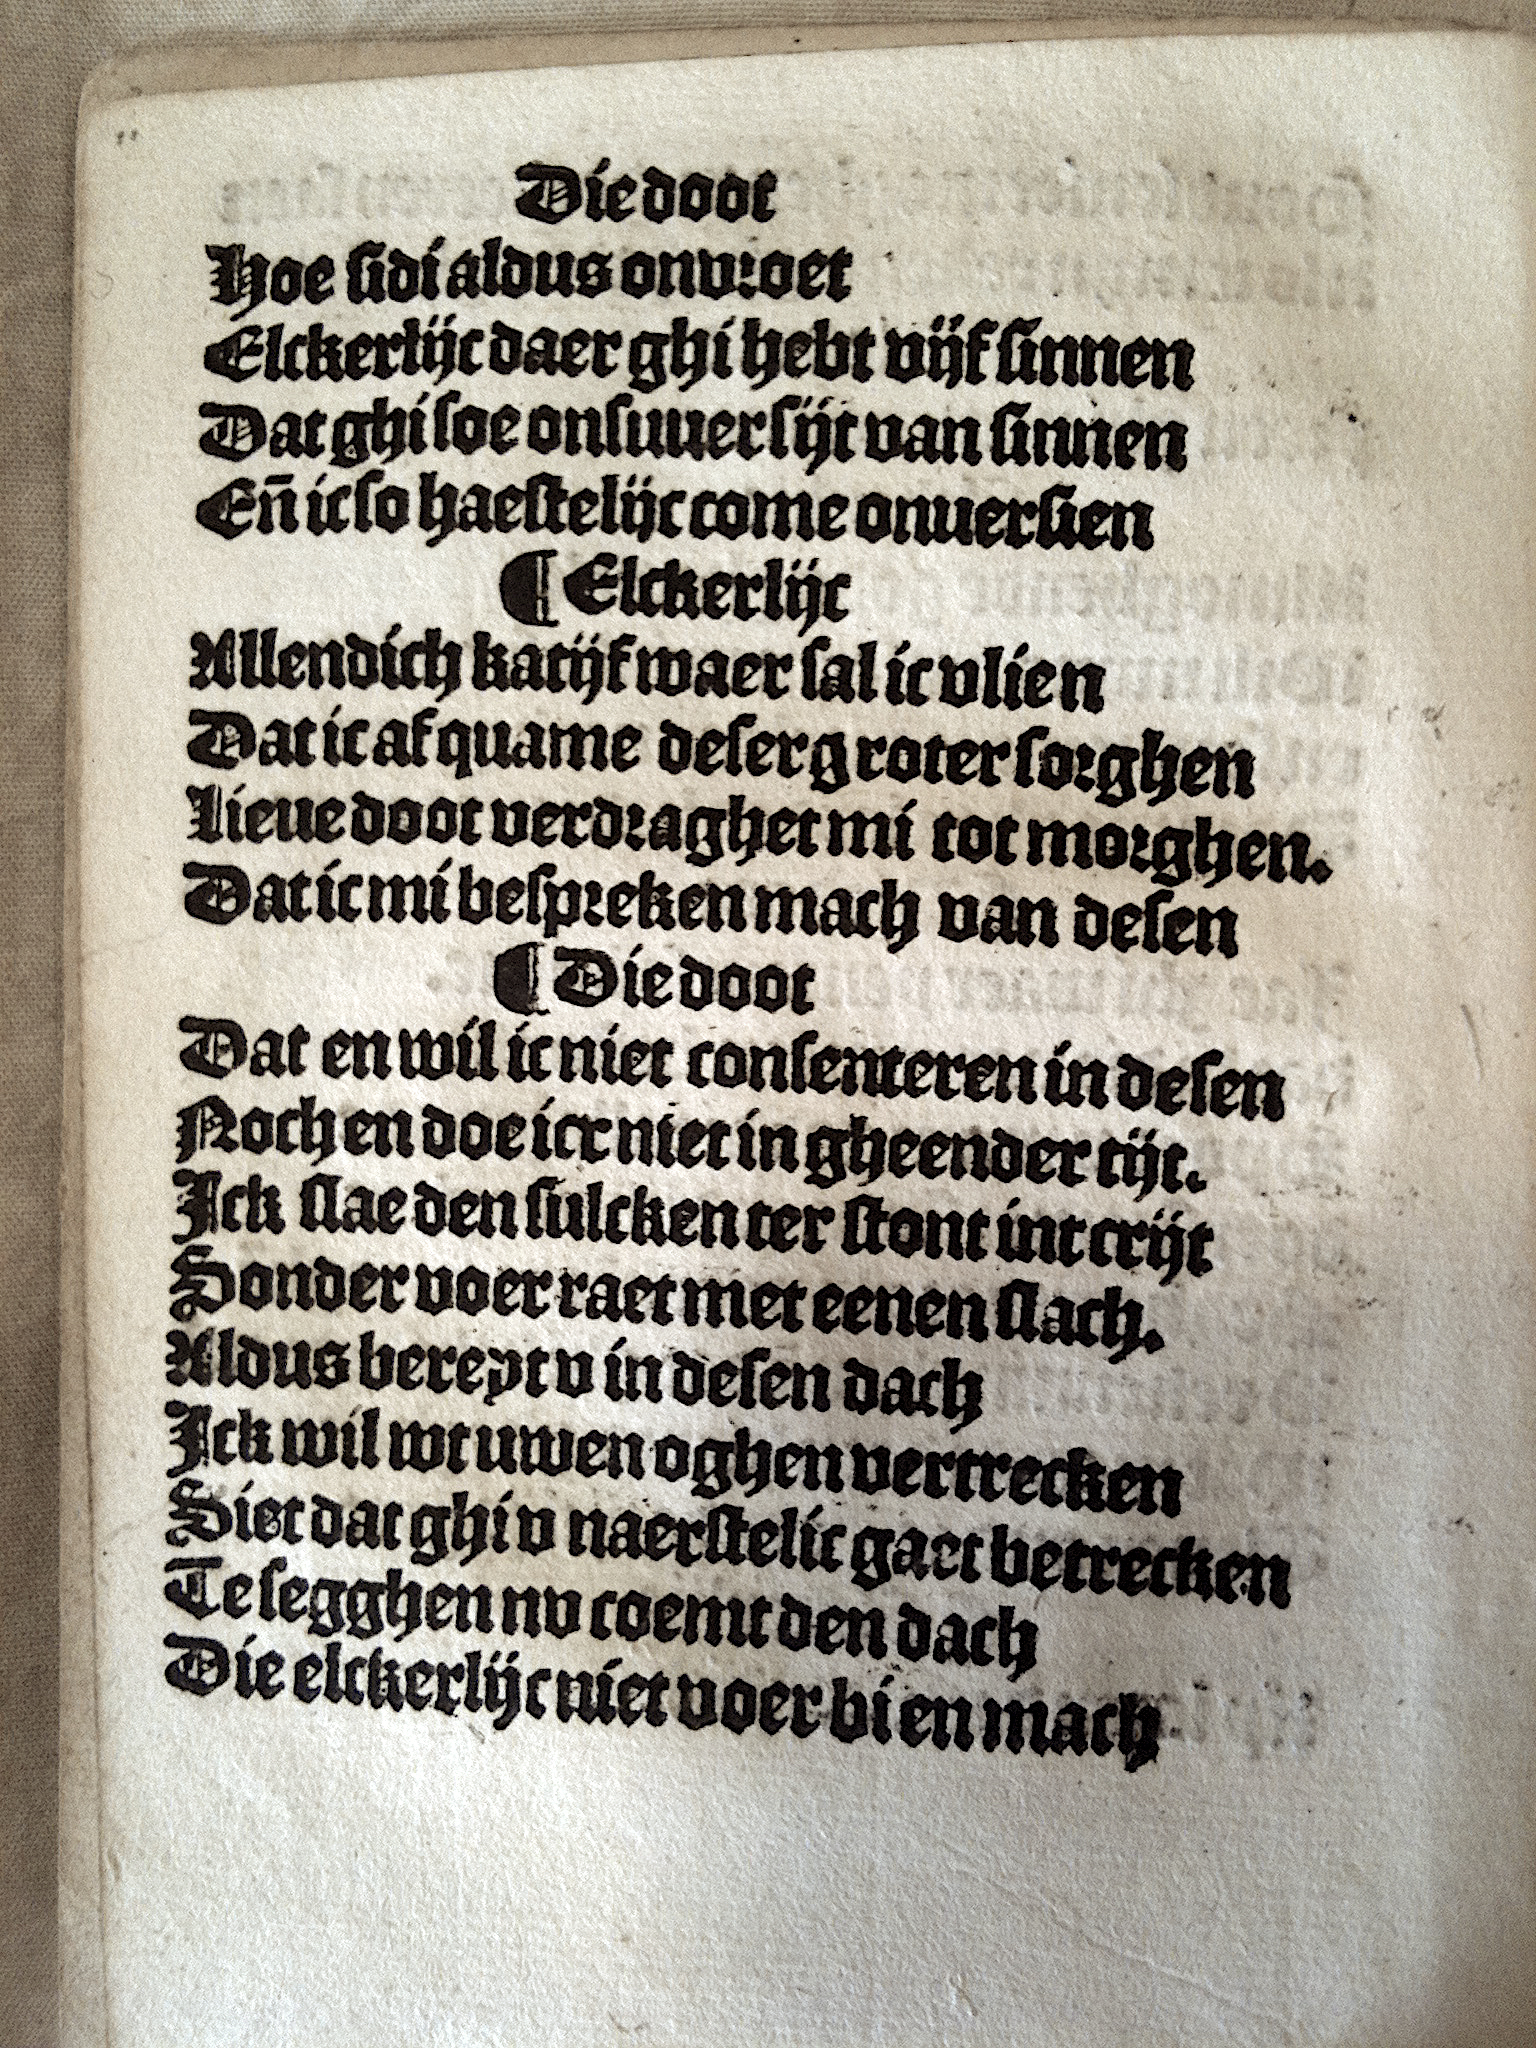 Die doot
Hoe sidi aldus onvroet
Elckerlijc daer ghi hebt vijf sinnen
Dat ghi soe onsuuer sijt van sinnen
Eñ ic so haestelijc come onuersien
¶ Elckerlijc
Allendich katijf waer sal ic vlien
Dat ic af quame deser groter sorghen
Lieue doot verdraghet mi tot morghen.
Dat ic mi bespreken mach van desen
¶ Die doot
Dat en wil ic niet consenteren in desen
Noch en doe icx niet in gheender tijt.
Ick slae den sulcken ter stont int crijt
Sonder voer raet met eenen slach.
Aldus bereyt v in desen dach
Ick wil wt uwen oghen vertrecken
Siet dat ghi v naerstelic gaet betrecken
Te segghen nv coemt den dach
Die elckerlijc niet voer bi en mach